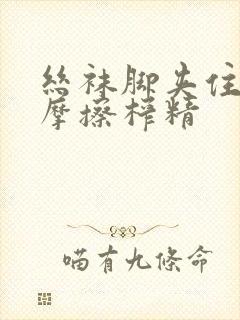 絲袜脚夹住
摩擦榨精
喵有九條命